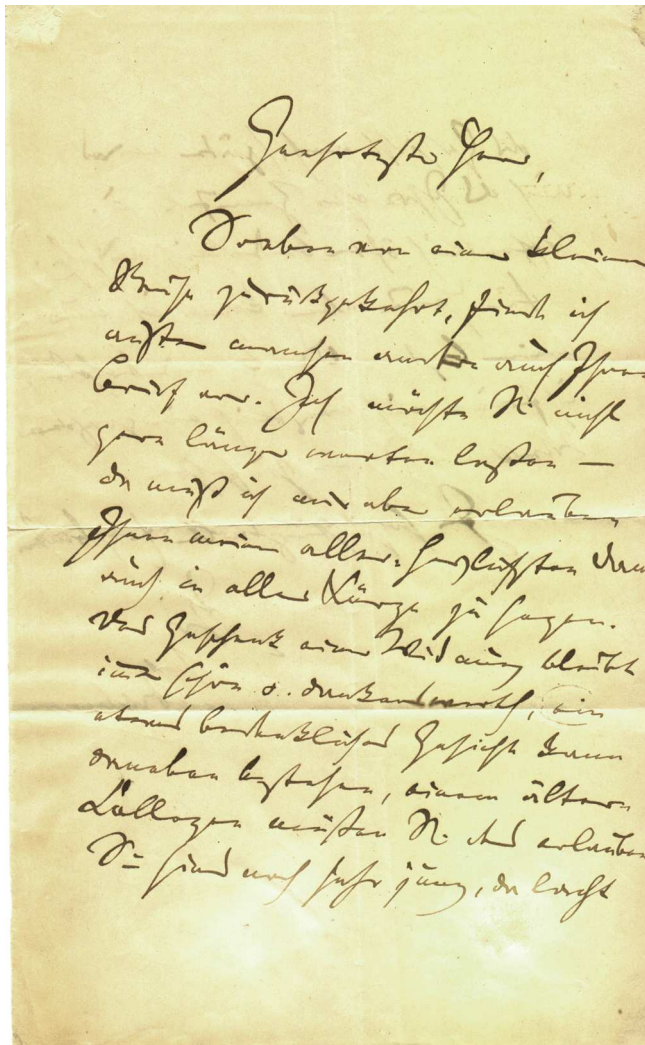 Geehrtester Herr,
Soeben von einer kleinen
Reise zurückgekehrt, finde ich
unter manchem andern auch Ihren
Brief vor. Ich möchte Sie nicht
gern länger warten lassen —
da muß ich mir aber erlauben
Ihnen meinen aller-herzlichsten Dank
auch in aller Kürze zu sagen.
Das Geschenk einer Widmung bleibt
immer schön u. dankenswerth, ein
etwas bedenkliches Gesicht kann
daneben bestehen, einem ältern
Collegen müßen Sie das erlauben
Sie sind noch sehr jung, da lacht